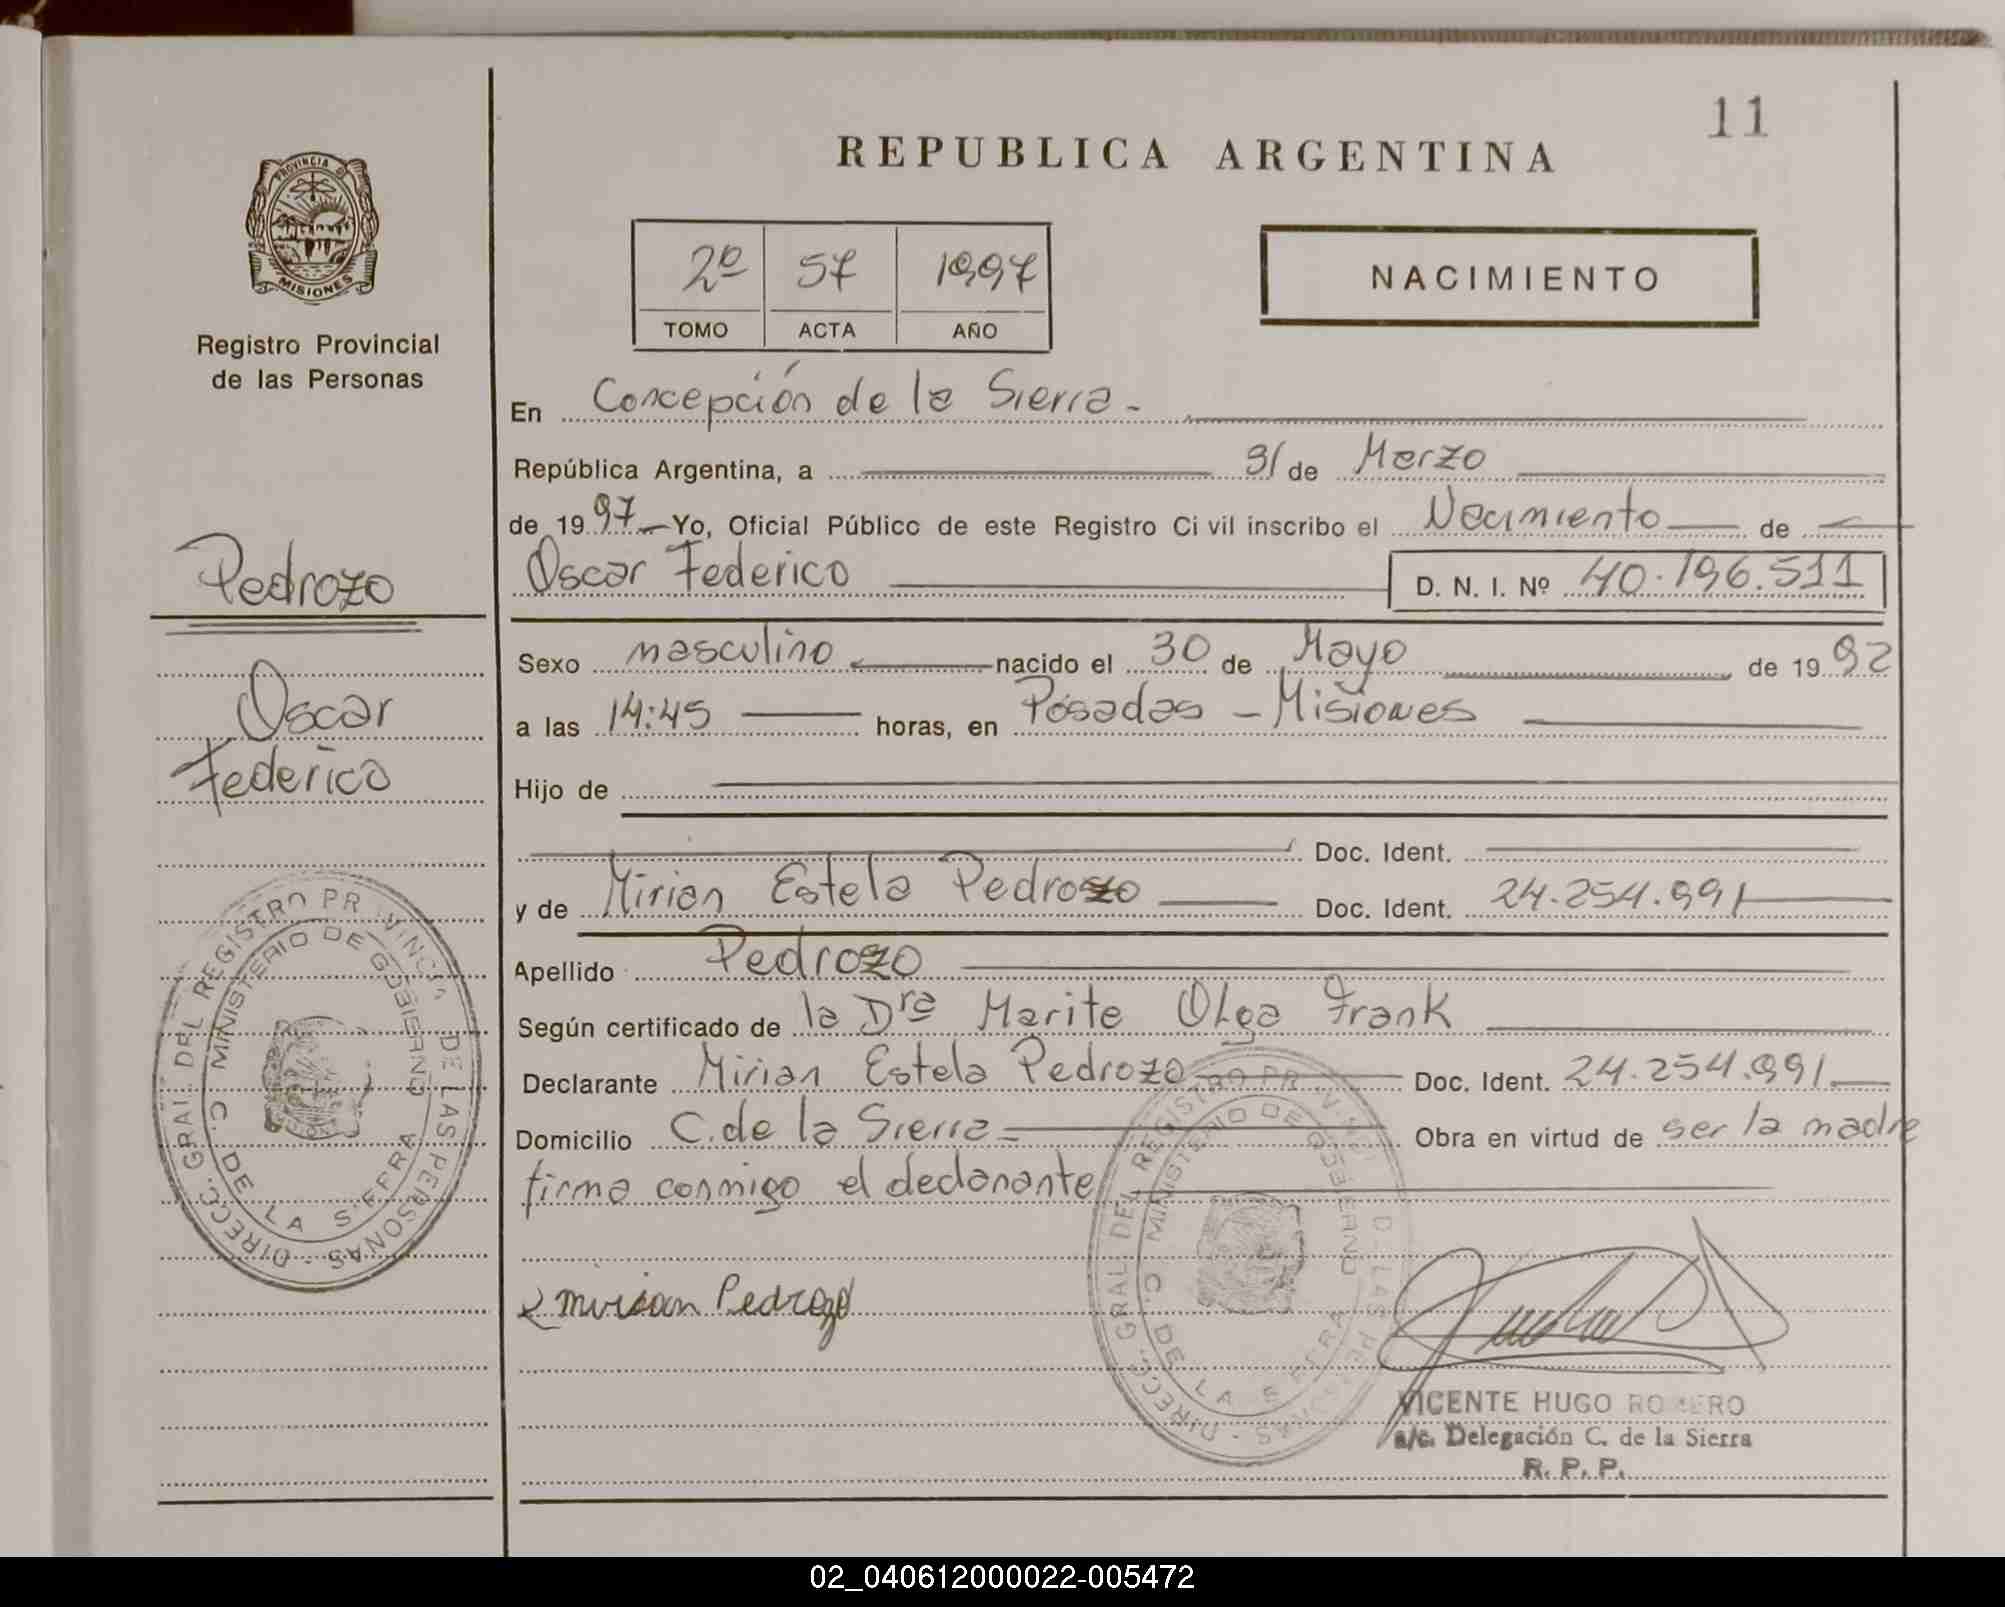 11
REPUBLICA ARGENTINA
PROVINCIA DE
MISIONES
Registro Provincial
de las Personas
2º 57 1997
TOMO ACTA AÑO
NACIMIENTO
En Concepción de la Sierra -
República Argentina, a 31 de Marzo
de 1997 Yo, Oficial Público de este Registro Civil inscribo el Nacimiento de
Oscar Federico D. N. I. Nº 40.196.511
Pedrozo
Oscar
Federico
Sexo masculino nacido el 30 de Mayo de 1992
a las 14:45 horas, en Posadas - Misiones
Hijo de
Doc. Ident.
y de Mirian Estela Pedrozo Doc. Ident. 24.254.991
Apellido Pedrozo
Según certificado de la Dra Marite Olga Frank
Declarante Mirian Estela Pedrozo Doc. Ident. 24.254.991
Domicilio C. de la Sierra - Obra en virtud de ser la madre
firma conmigo el declarante
DIRECC. GRAL. DEL REGISTRO PROVINCIAL DE LAS PERSONAS
MINISTERIO DE GOBIERNO
C. DE LA SIERRA
DIRECC. GRAL. DEL REGISTRO PROVINCIAL DE LAS PERSONAS
MINISTERIO DE GOBIERNO
C. DE LA SIERRA
mirian Pedrozo
VICENTE HUGO ROMERO
a/c. Delegación C. de la Sierra
R. P. P.
02_040612000022-005472